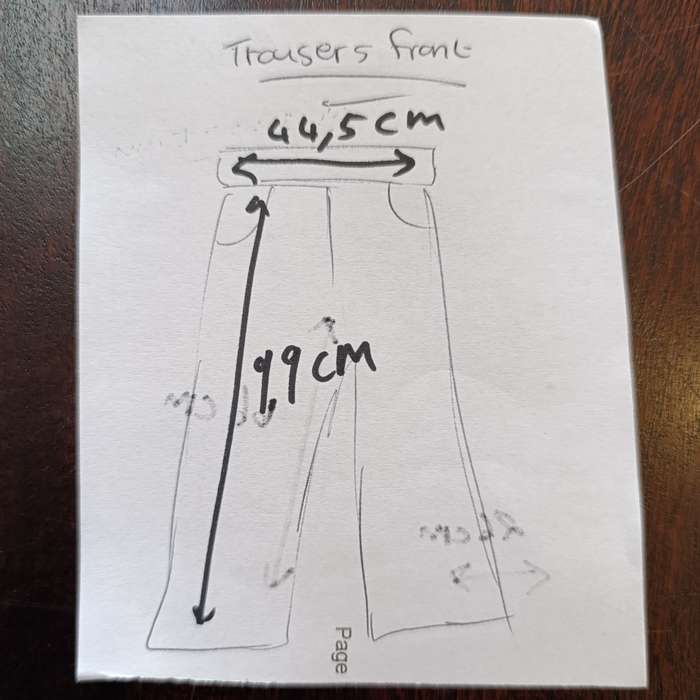 Trousers front
44,5 cm
99 cm
Page